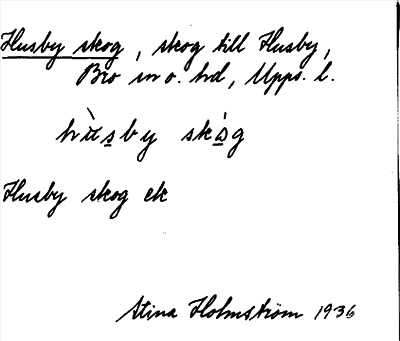 Husby skog, skog till Husby,
Bro sn o. hd, Upps. l.
hùsby skóg
Husby skog ek
Stina Holmström 1936